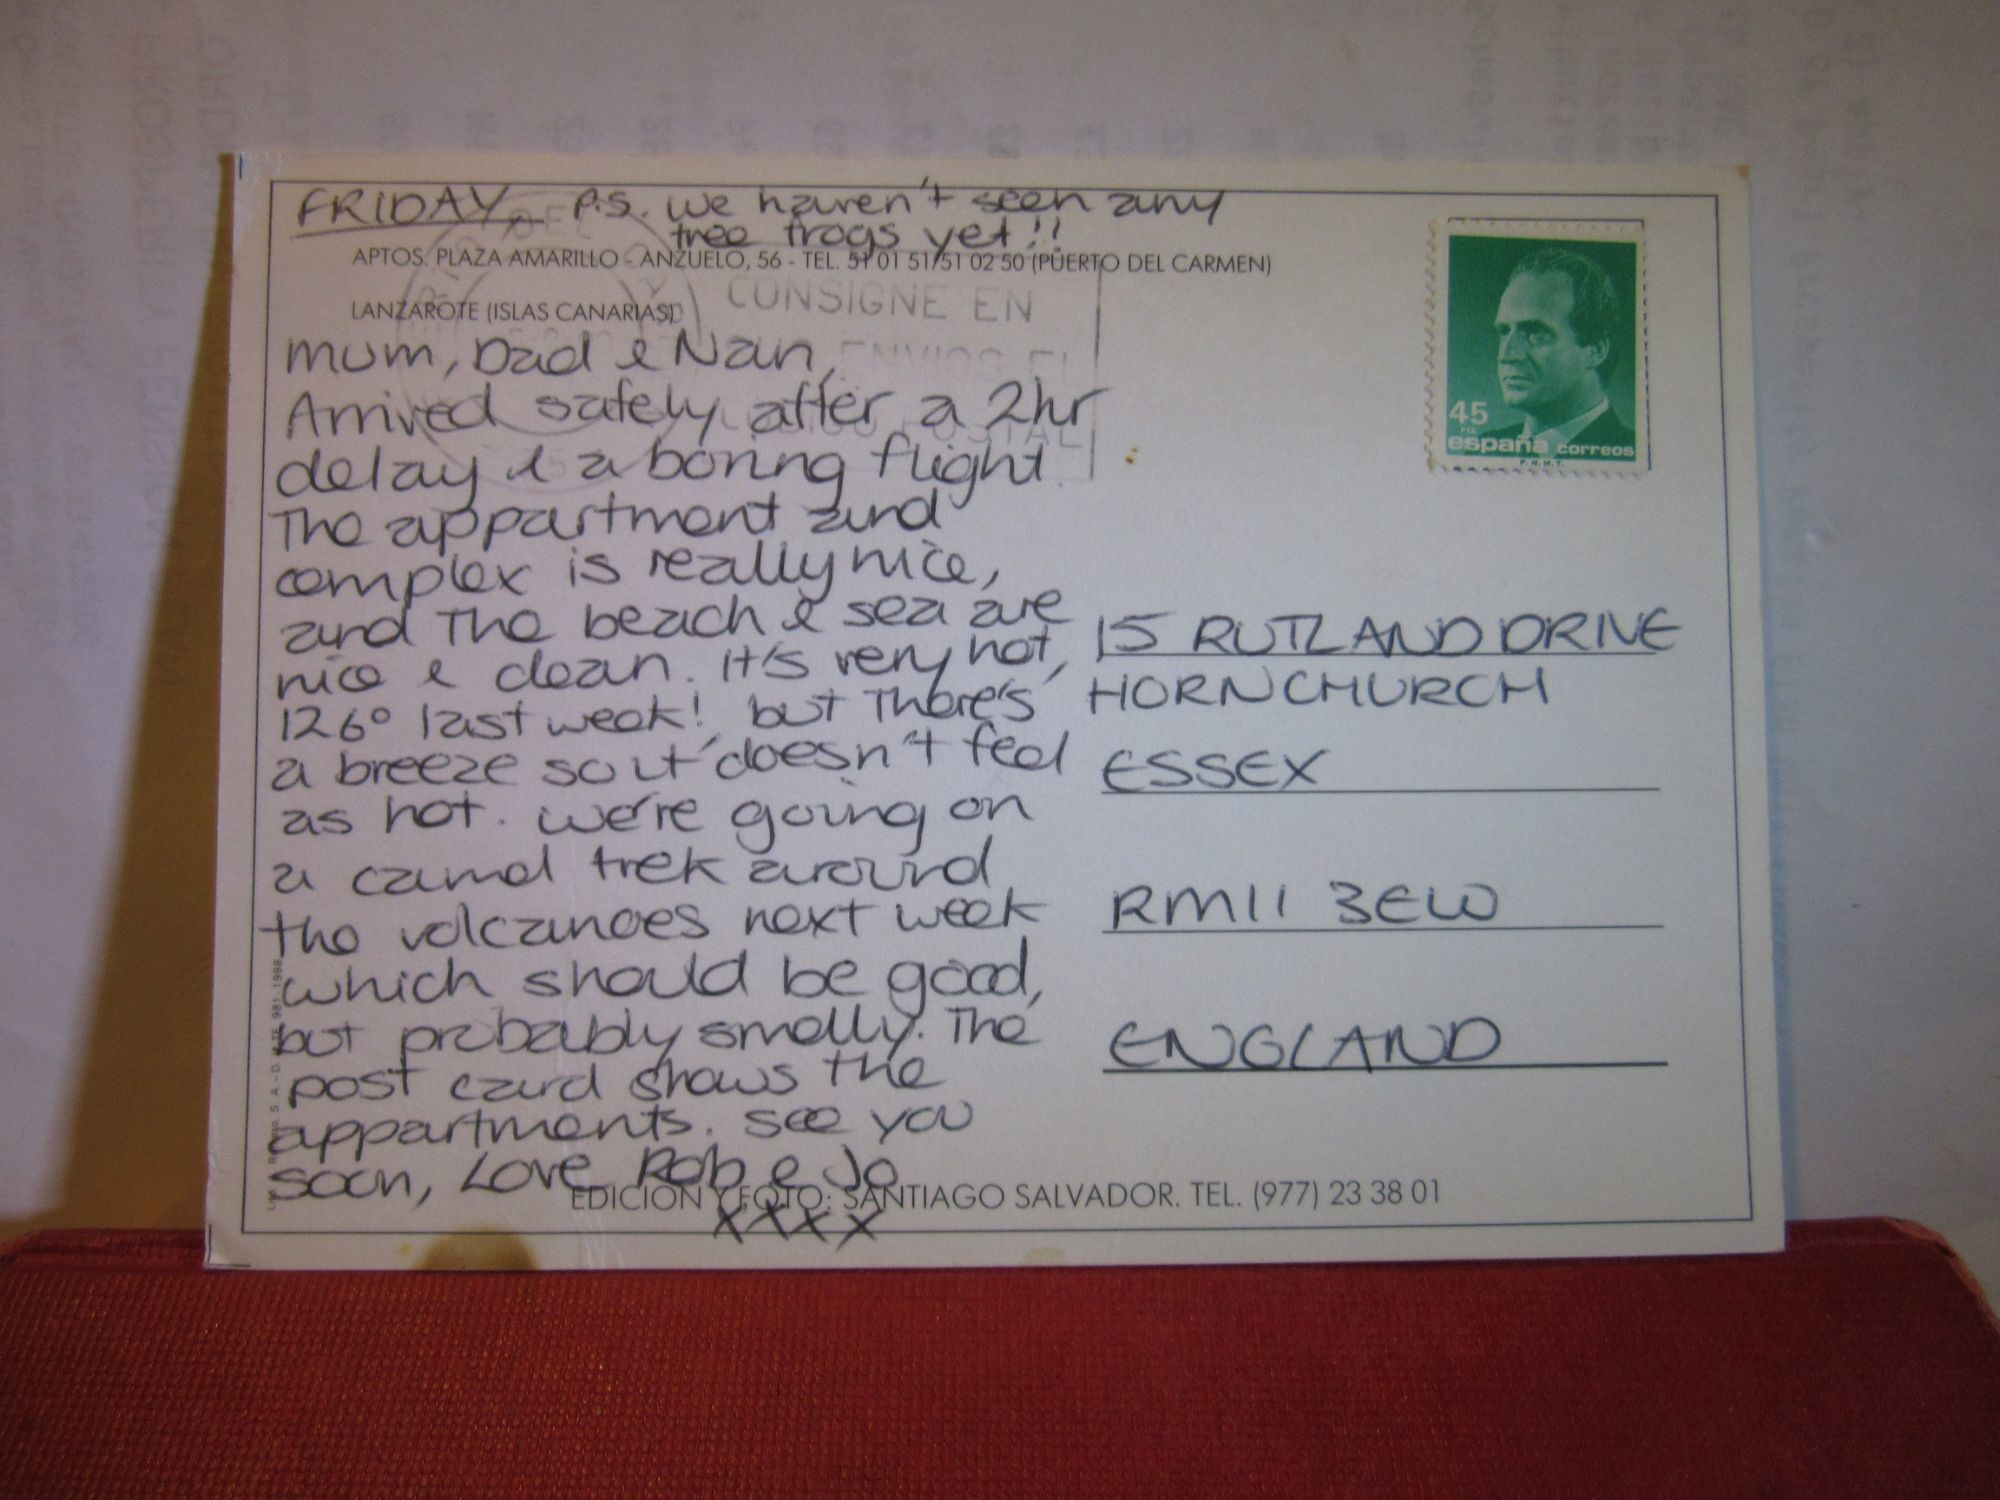 FRIDAY, P.S. we haven't seen any
tree frogs yet!!
APTOS. PLAZA AMARILLO - ANZUELO, 56 - TEL. 51 01 51/51 02 50 (PUERTO DEL CARMEN)
LANZAROTE (ISLAS CANARIAS)
CONSIGNE EN
ENVIOS EL
POSTAL
mum, Dad & Nan,
Arrived safely after a 2hr
delay & a boring flight.
The appartment and
complex is really nice,
and The beach & sea are
nice & clean. it's very hot,
126° last week! but There's
a breeze so it doesn't feel
as hot. we're going on
a camel trek around
the volcanoes next week
which should be good,
but probably smelly. The
post card shows the
appartments. see you
soon, Love Rob & Jo
xxxx
45
PTA
españa correos
F.N.M.T.
15 RUTLAND DRIVE
HORNCHURCH
ESSEX
RM11 3EW
ENGLAND
EDICION Y FOTO: SANTIAGO SALVADOR. TEL. (977) 23 38 01